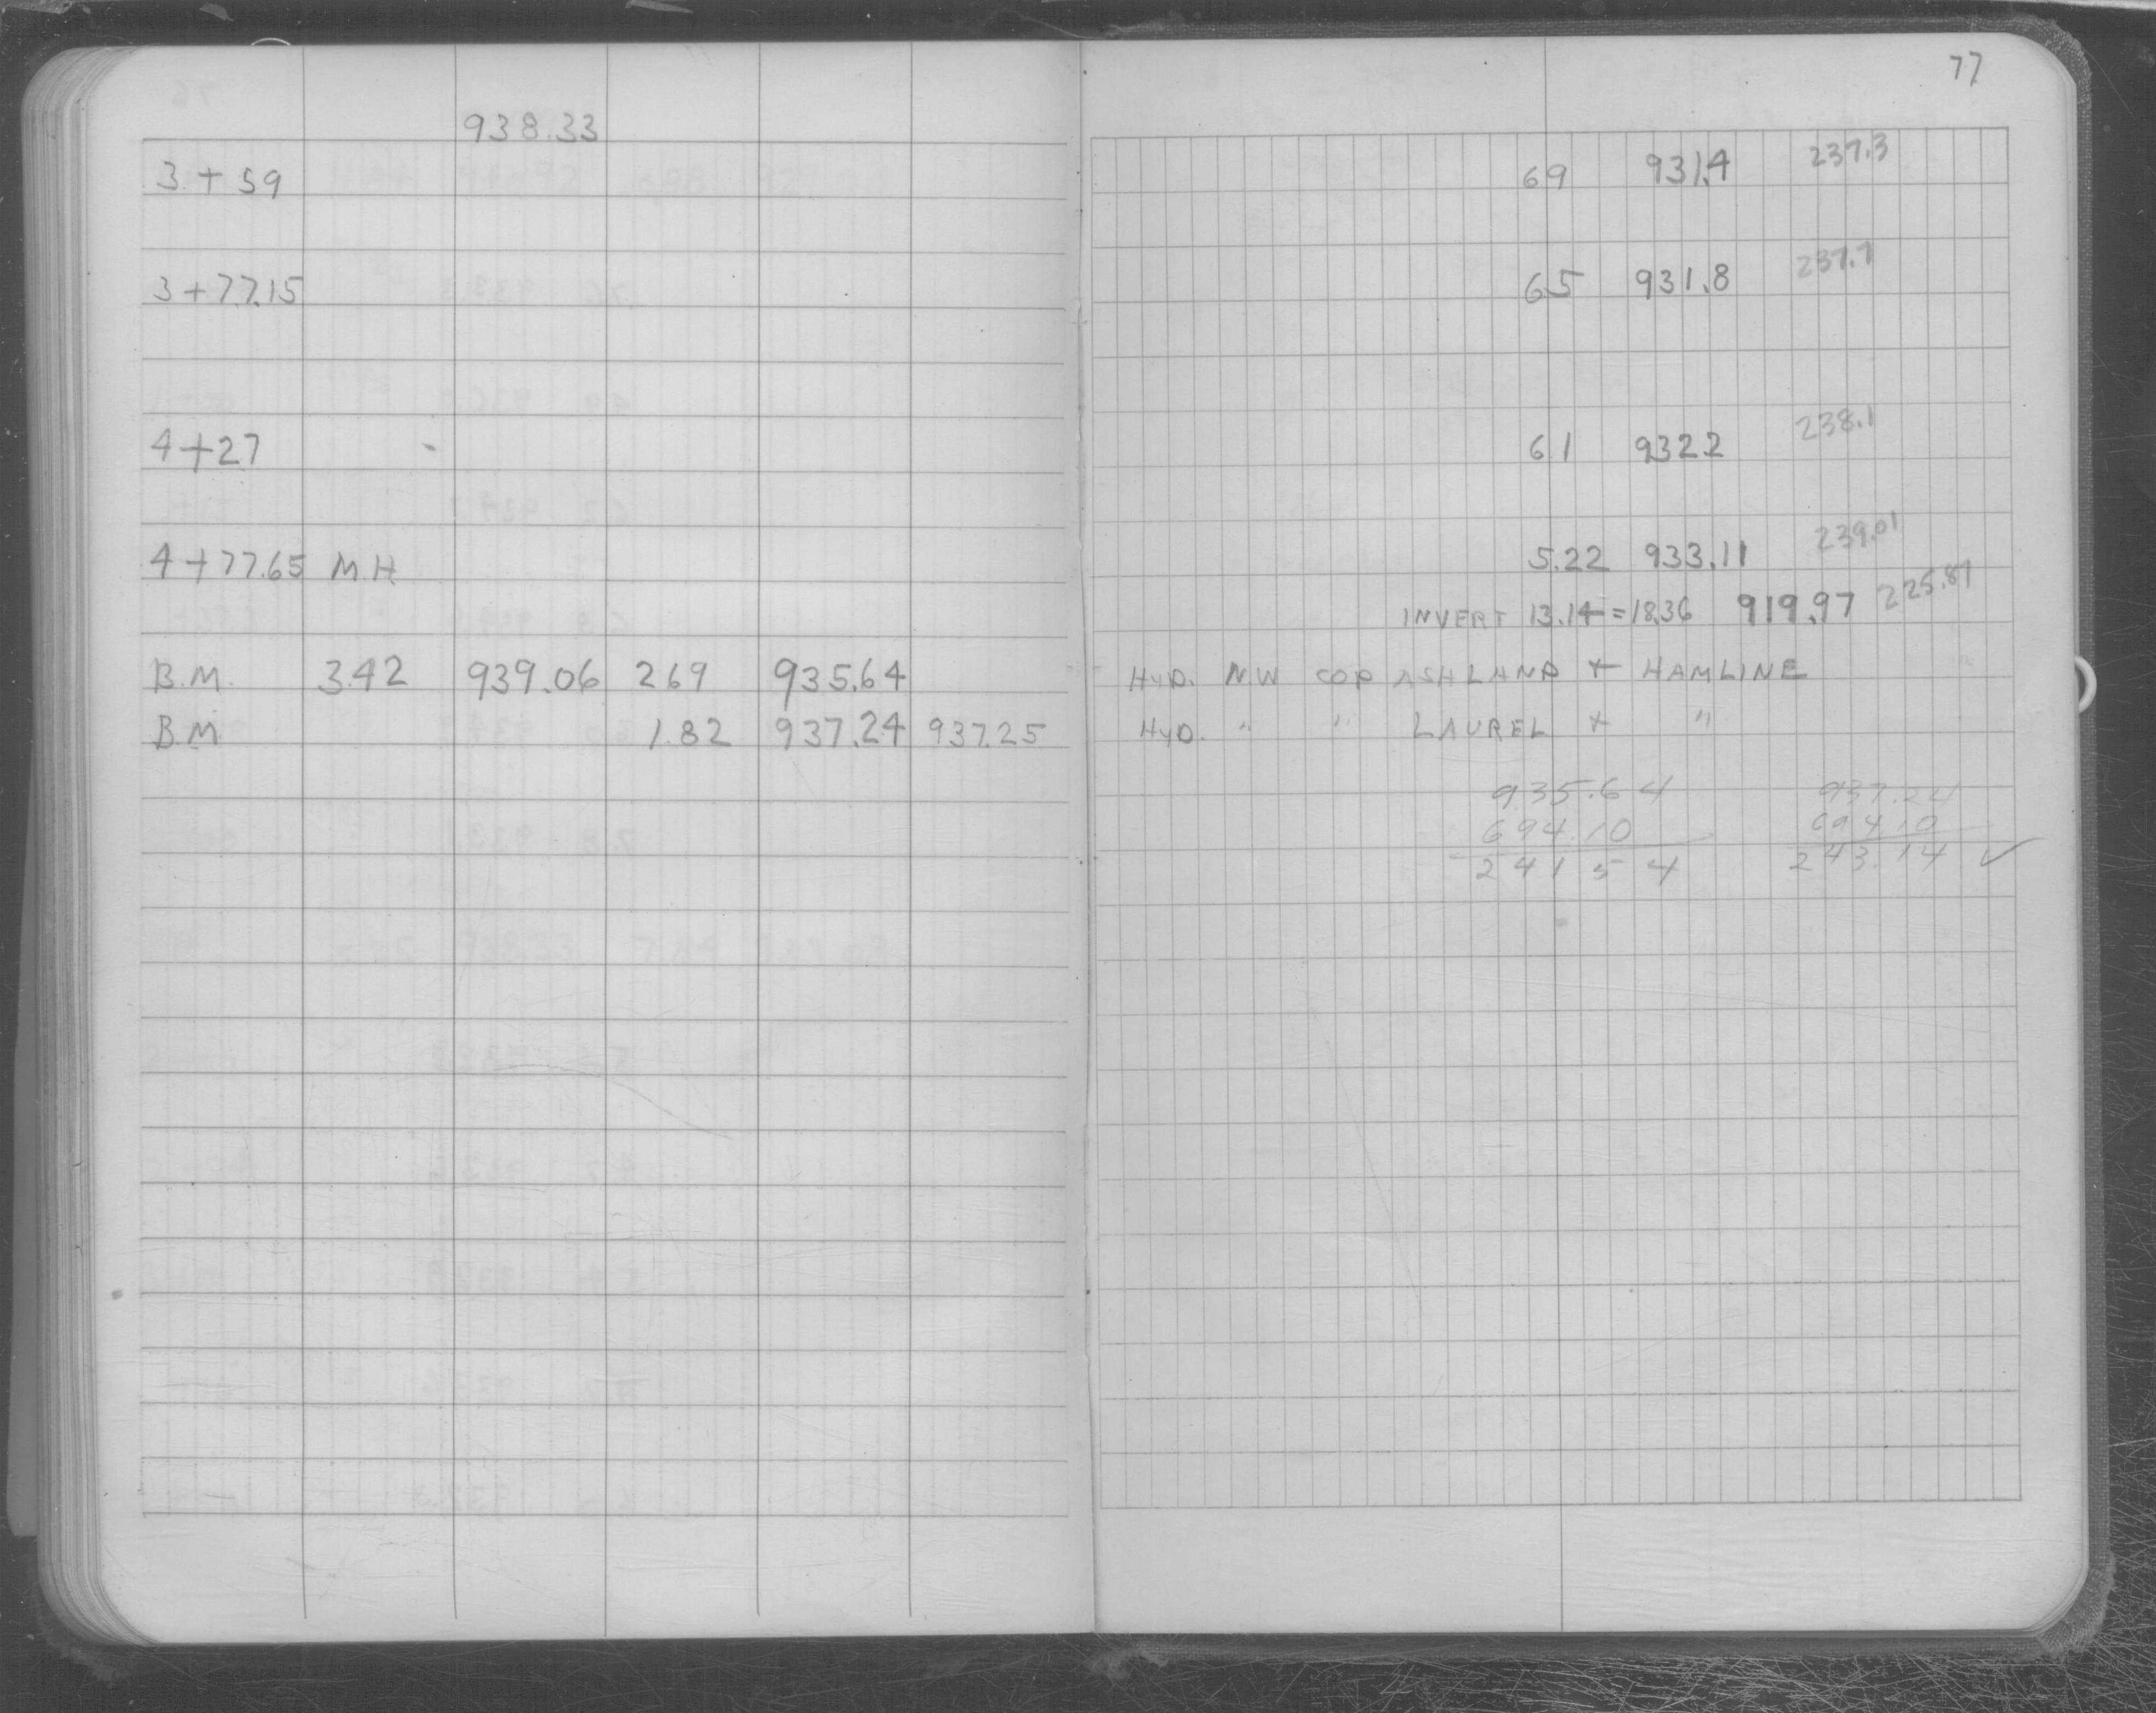 77
938.33
3+59 6.9 931.4 237.3
3+77.15 6.5 931.8 237.7
4+27 6.1 932.2 238.1
4+77.65 M.H. 5.22 933.11 239.01
INVERT 13.14 = 18.36 919.97 225.87
B.M. 3.42 939.06 2.69 935.64 HYD. N.W COR ASHLAND + HAMLINE
B.M 1.82 937.24 937.25 HYD. " " LAUREL + "
935.64 937.24
694.10 694.10
241 54 243.14 ✓